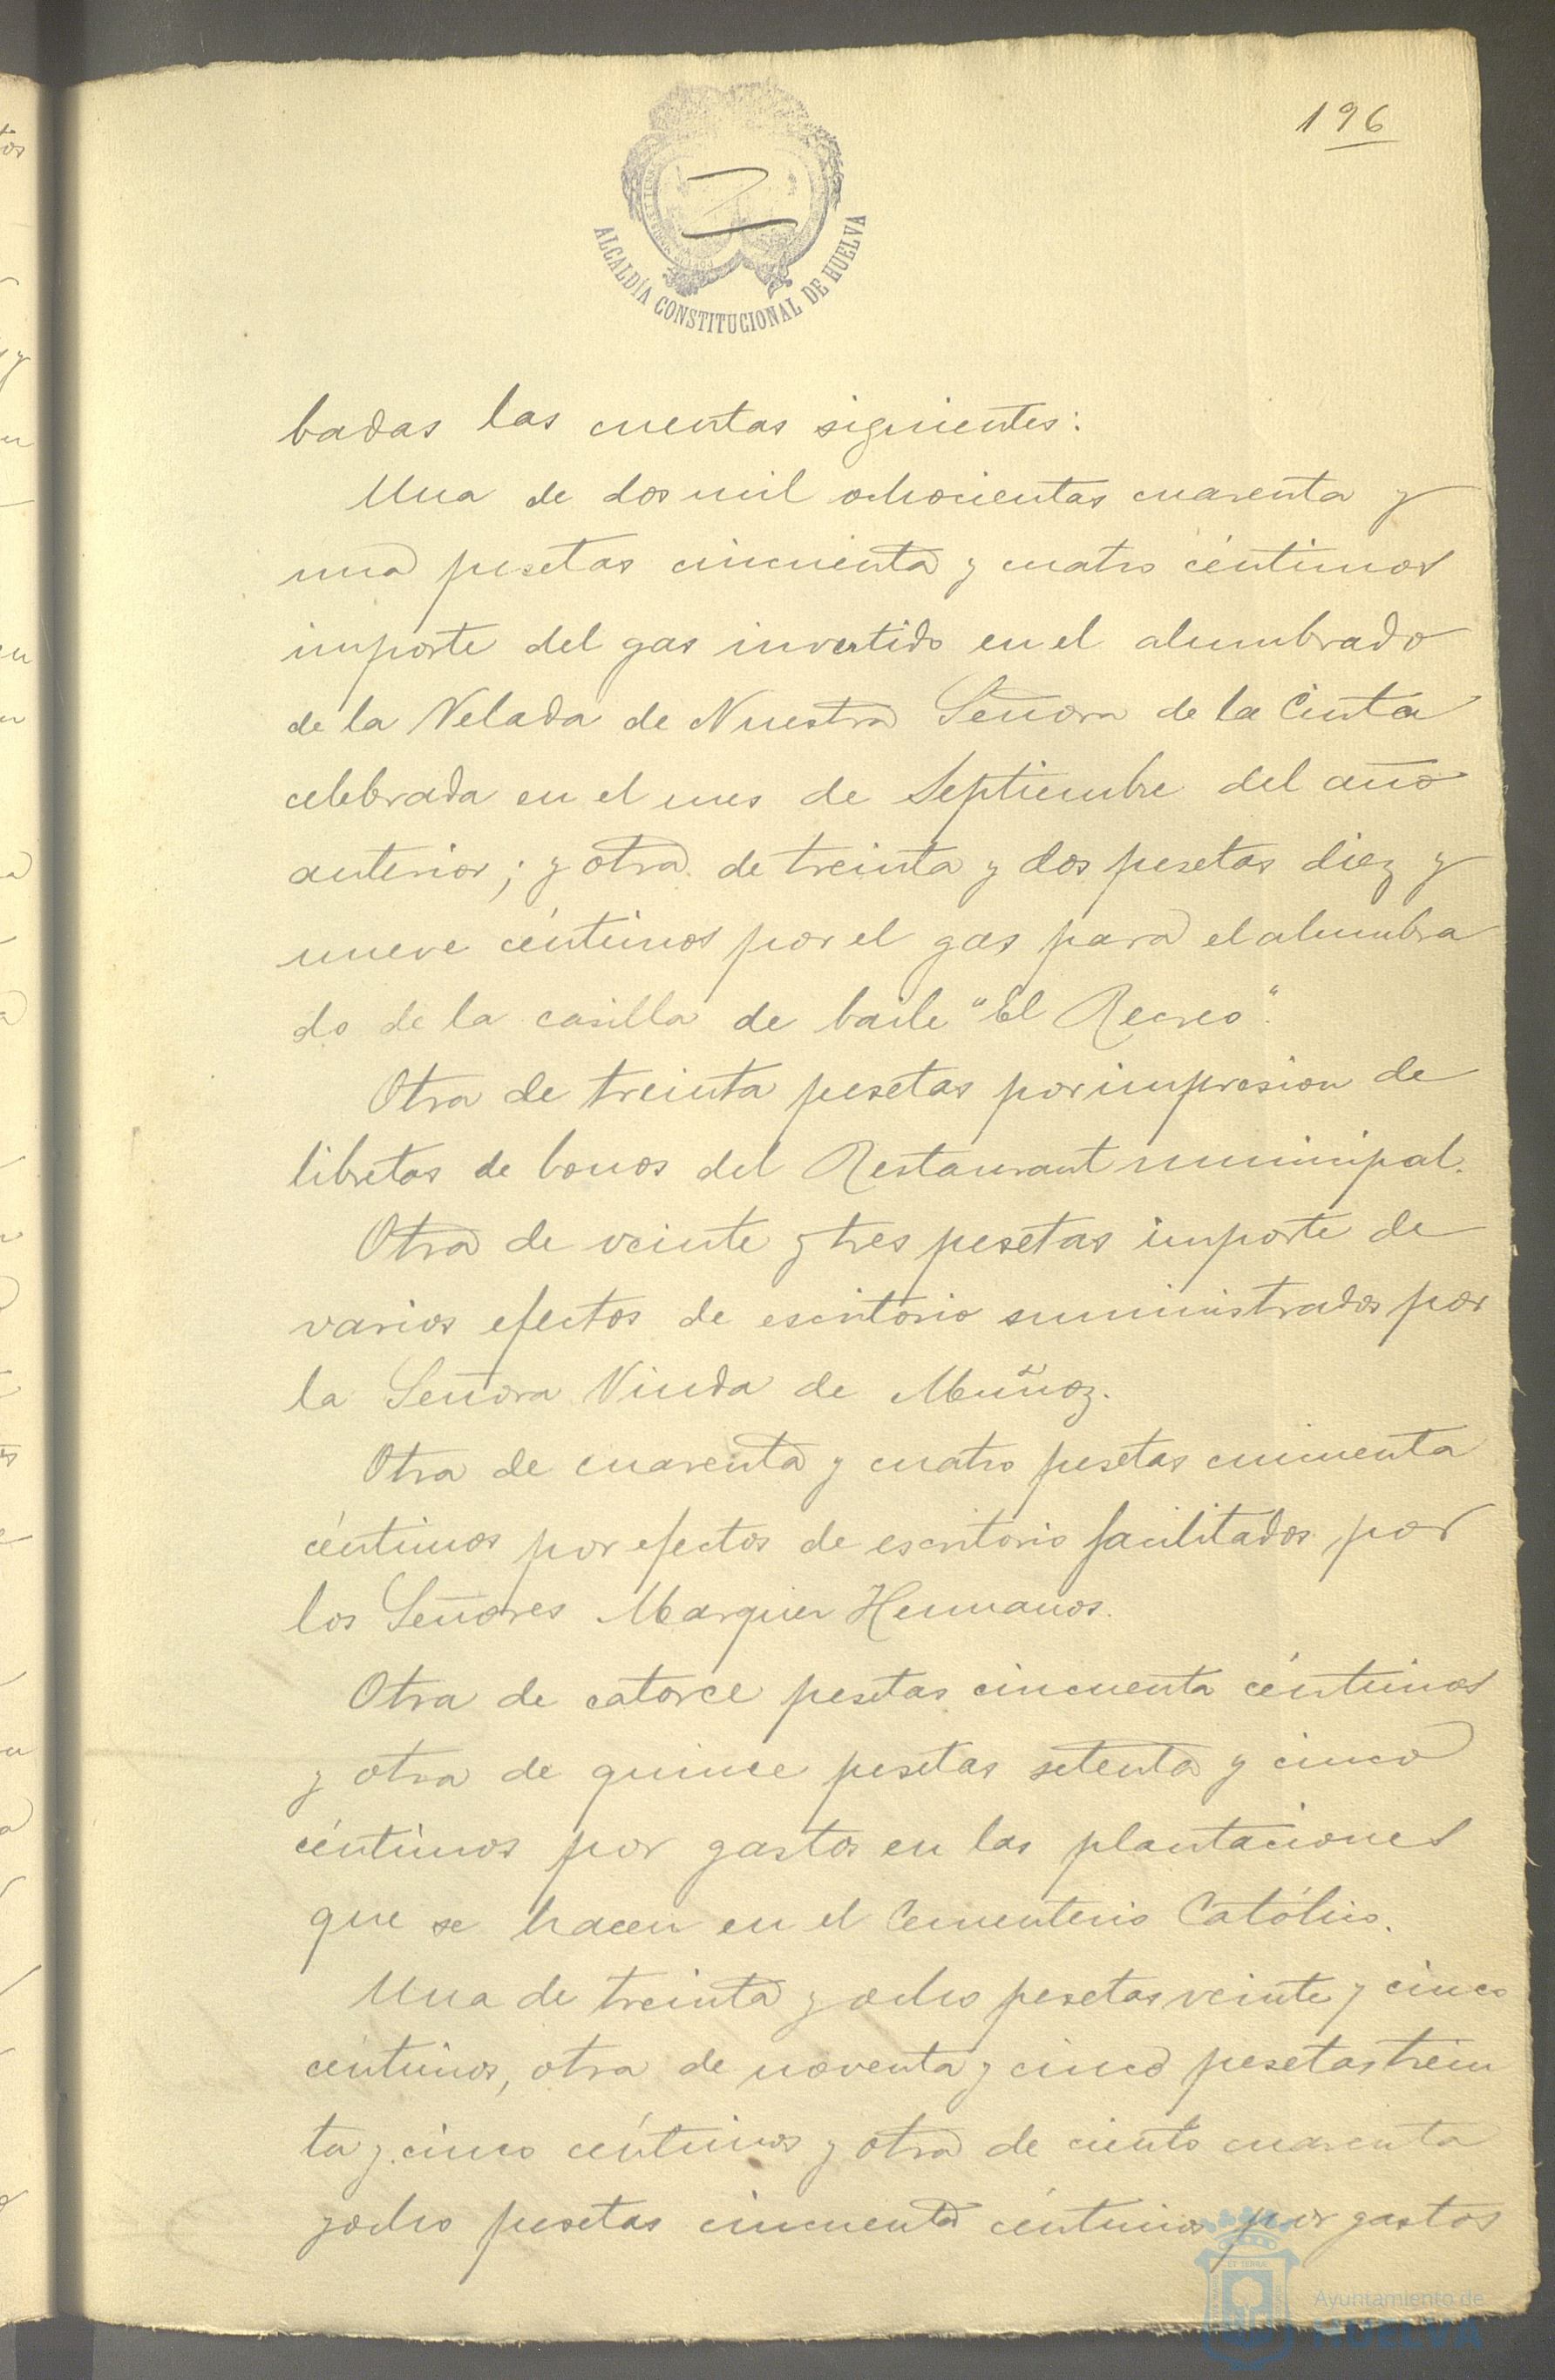 196
ALCALDÍA CONSTITUCIONAL DE HUELVA
badas las cuentas siguientes:
Una de dos mil ochocientas cuarenta y
una pesetas cincuenta y cuatro céntimos
importe del gas invertido en el alumbrado
de la Velada de Nuestra Señora de la Cinta
celebrada en el mes de Septiembre del año
anterior; y otra de treinta y dos pesetas diez y
nueve céntimos por el gas para el alumbra
do de la casilla de baile "El Recreo".
Otra de treinta pesetas por impresion de
libretas de bonos del Restaurant municipal.
Otra de veinte y tres pesetas importe de
varios efectos de escritorio suministrados por
la Señora Viuda de Muñoz.
Otra de cuarenta y cuatro pesetas cincuenta
céntimos por efectos de escritorio facilitados por
los Señores Hermanos.
Otra de catorce pesetas cincuenta céntimos
y otra de quince pesetas setenta y cinco
céntimos por gastos en las plantaciones
que se hacen en el Cementerio Católico.
Una de treinta y ocho pesetas veinte y cinco
céntimos, otra de noventa y cinco pesetas trein
ta y cinco céntimos y otra de ciento cuarenta
y ocho pesetas cincuenta céntimos por gastos
Ayuntamiento de
HUELVA